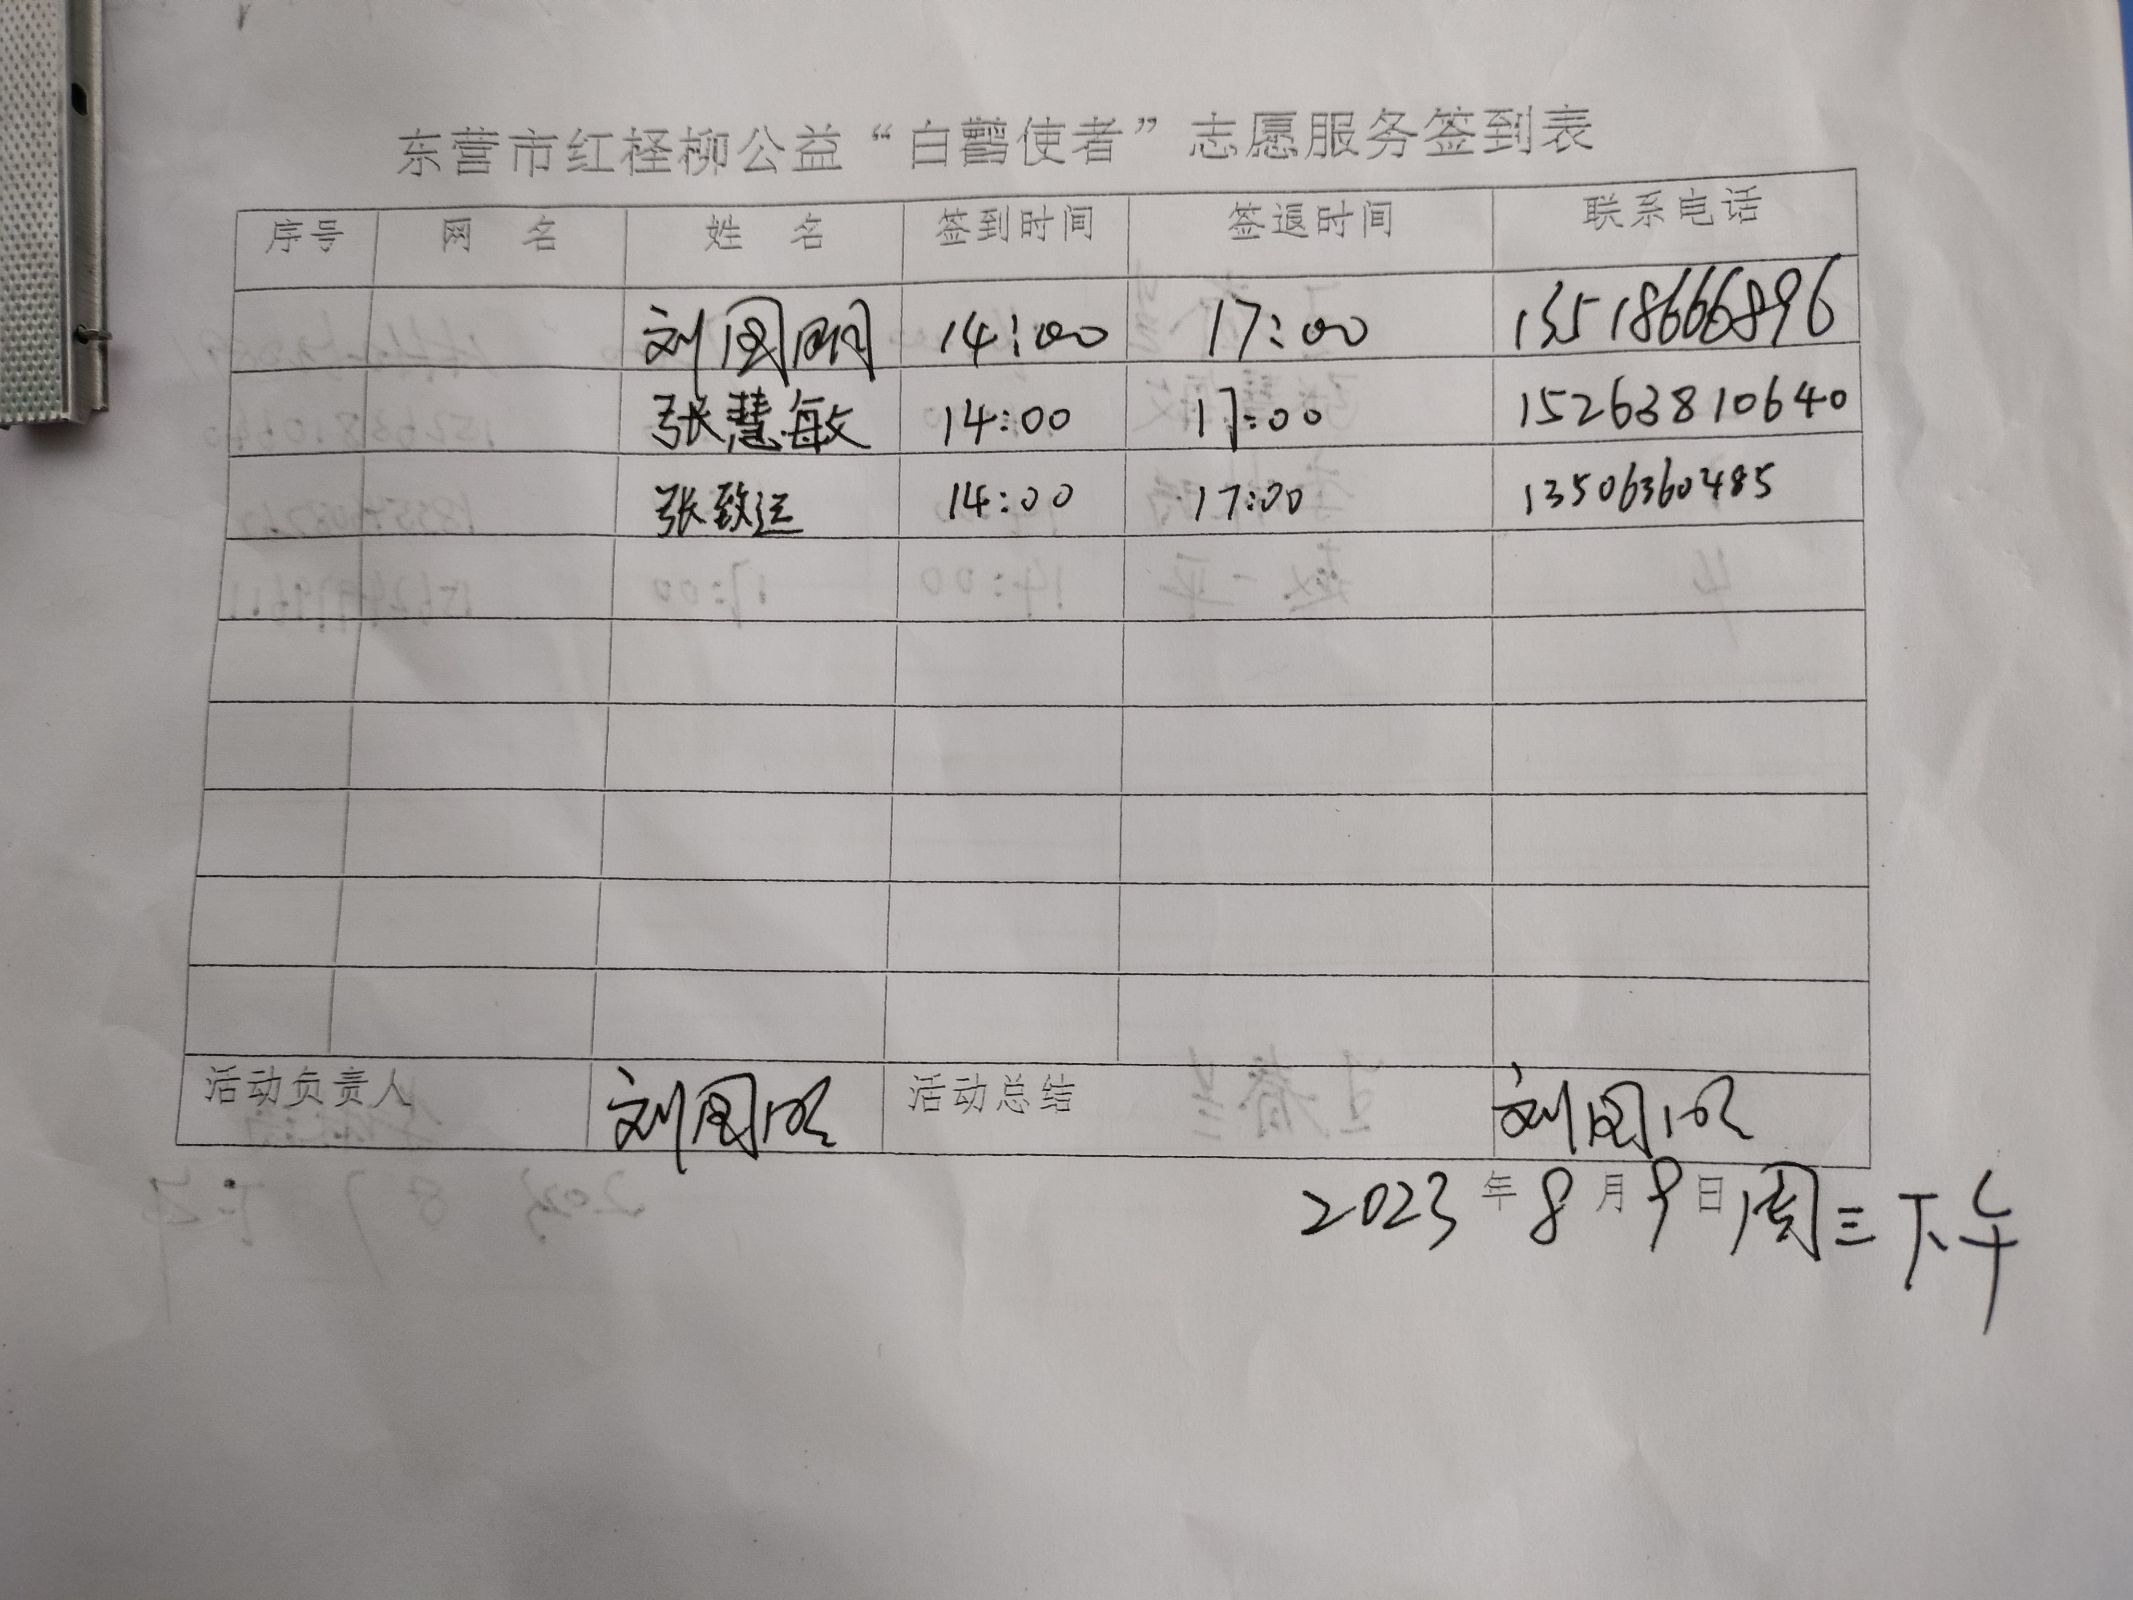 东营市红柽柳公益“白鹳使者”志愿服务签到表
序号 网 名 姓 名 签到时间 签退时间 联系电话
刘国明 14:00 17:00 13518666896
张慧敏 14:00 17:00 15263810640
张致远 14:00 17:00 13506360485
活动负责人 刘国明 活动总结 刘国明
2023年8月9日周三下午